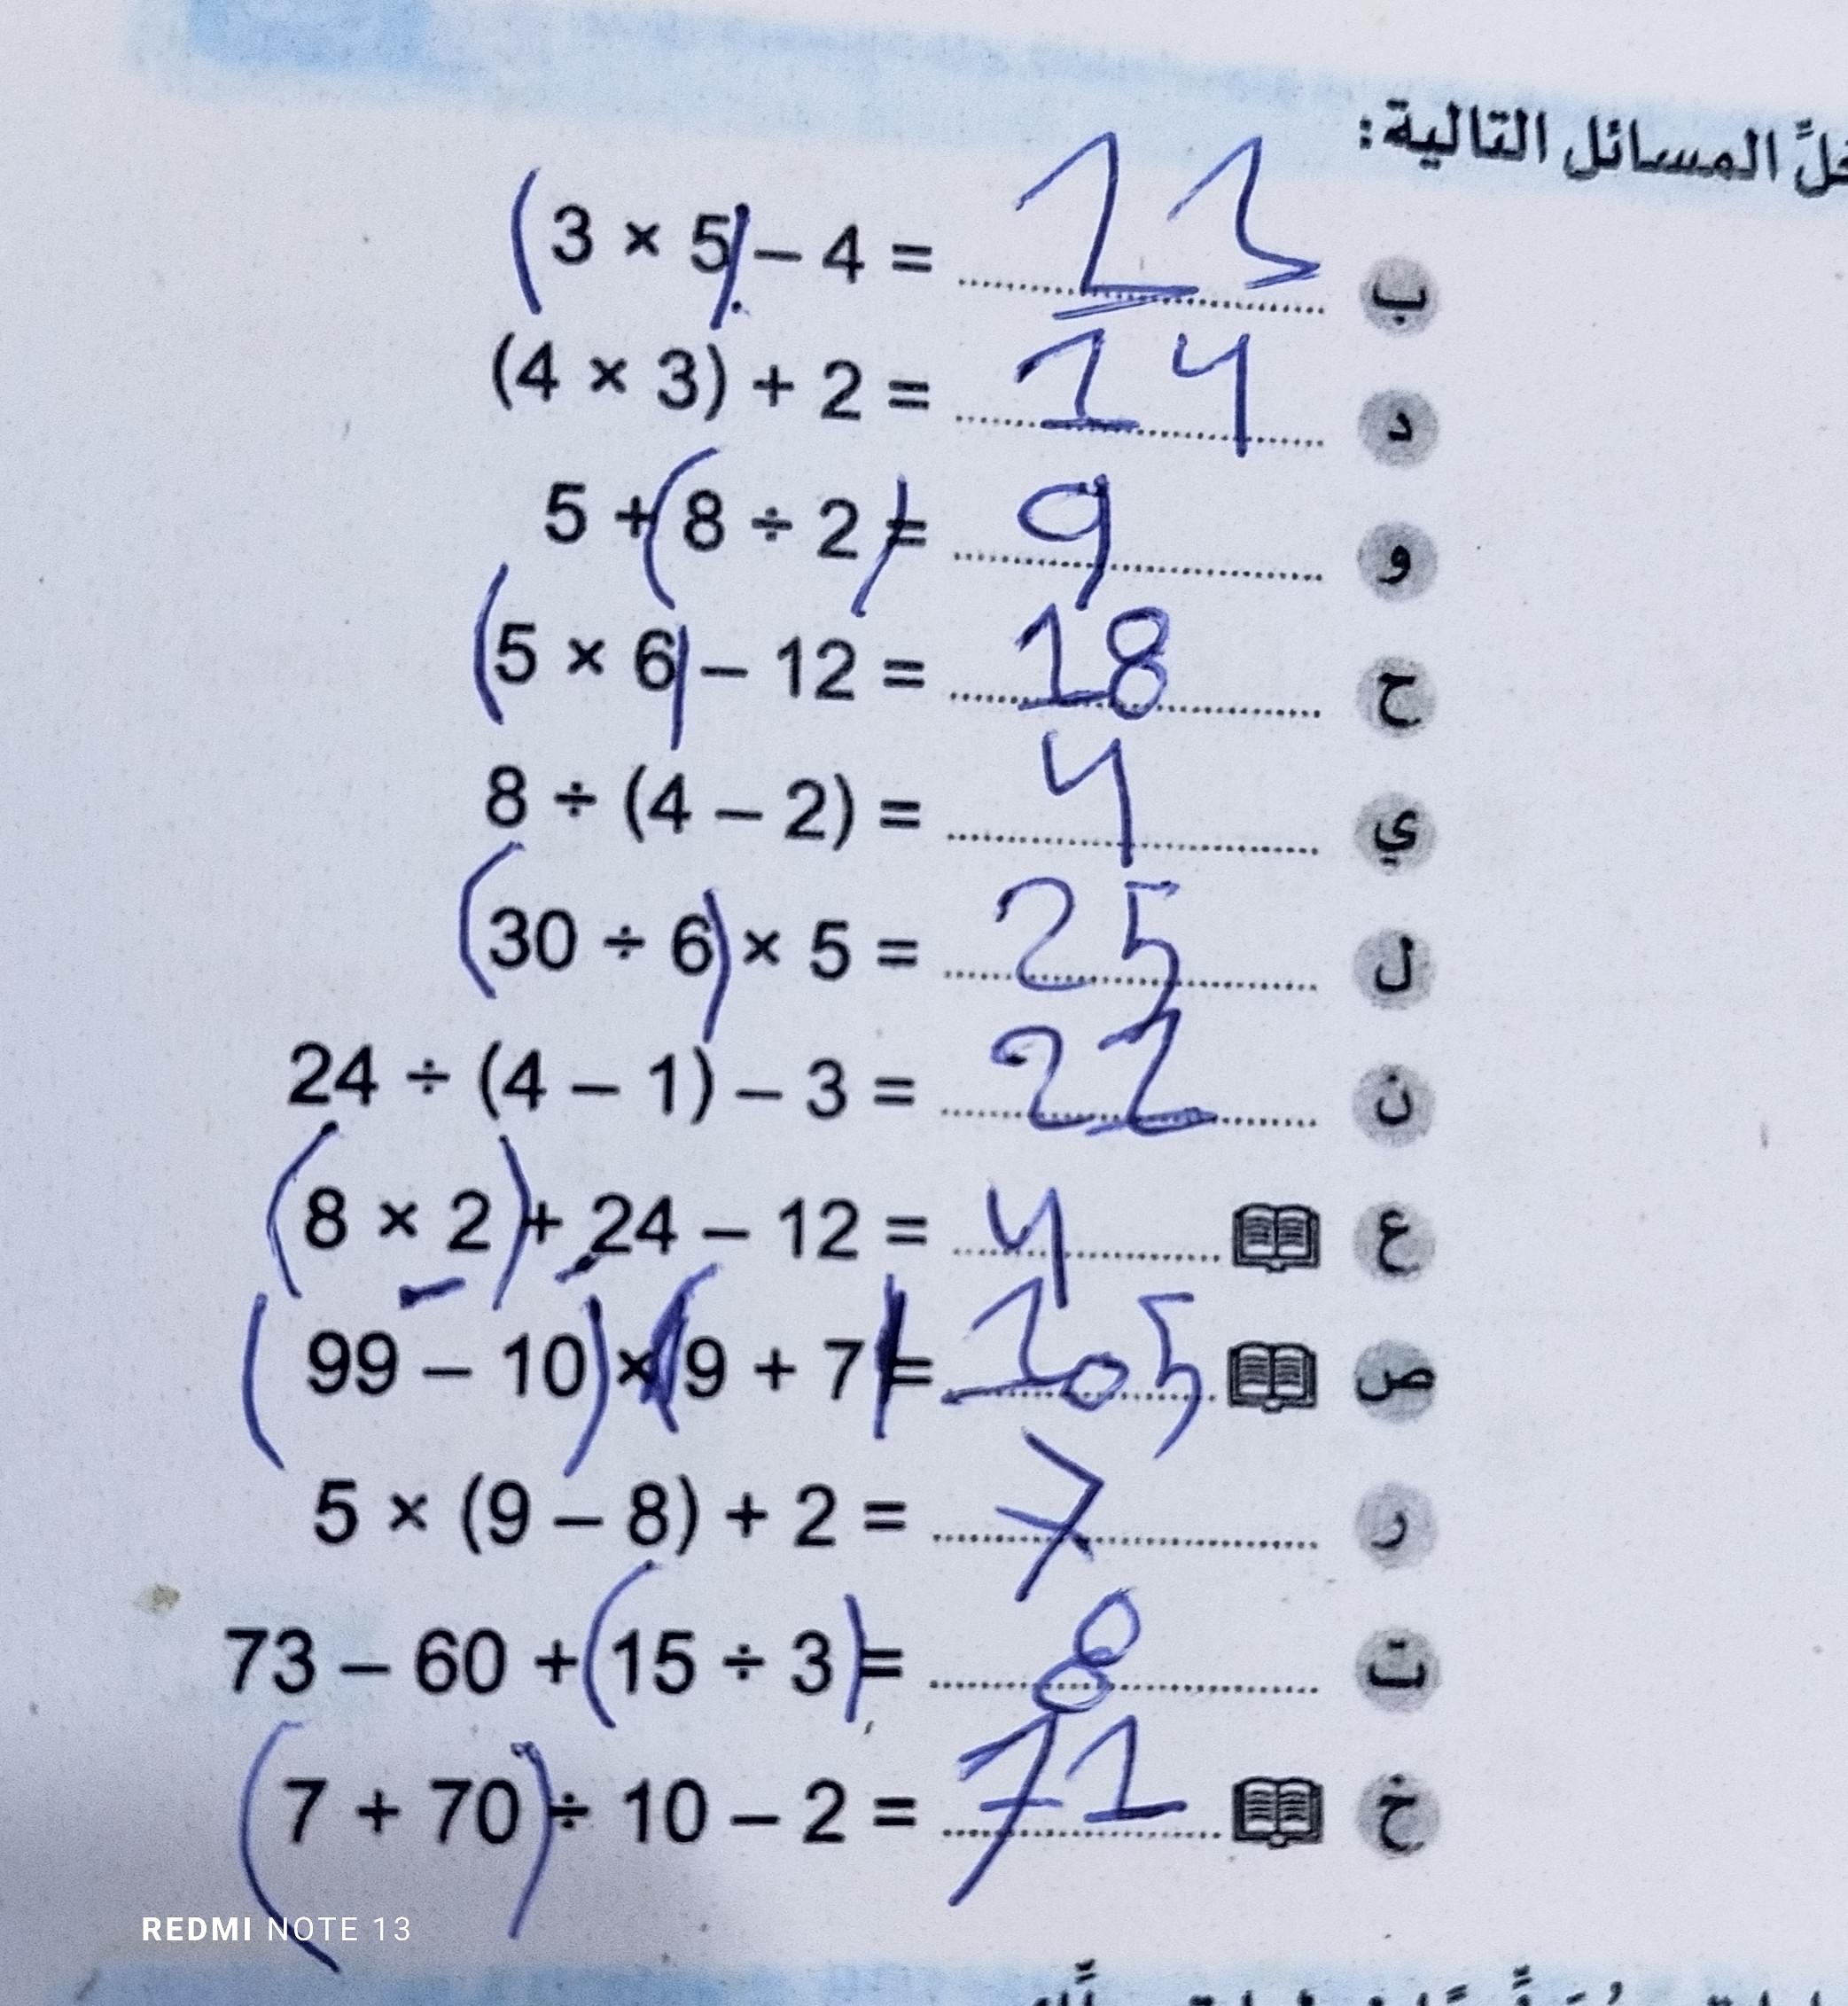 حل المسائل التالية:
ب (3 × 5) – 4 = 11
د (4 × 3) + 2 = 14
و 5 + (8 ÷ 2) = 9
ح (5 × 6) – 12 = 18
ي 8 ÷ (4 – 2) = 4
ل (30 ÷ 6) × 5 = 25
ن 24 ÷ (4 – 1) – 3 = 22
ع (8 × 2) + 24 – 12 = 4
ص (99 – 10) × (9 + 7) = 105
ر 5 × (9 – 8) + 2 = 7
ت 73 – 60 + (15 ÷ 3) = 8
خ (7 + 70) ÷ 10 – 2 = 71
REDMI NOTE 13